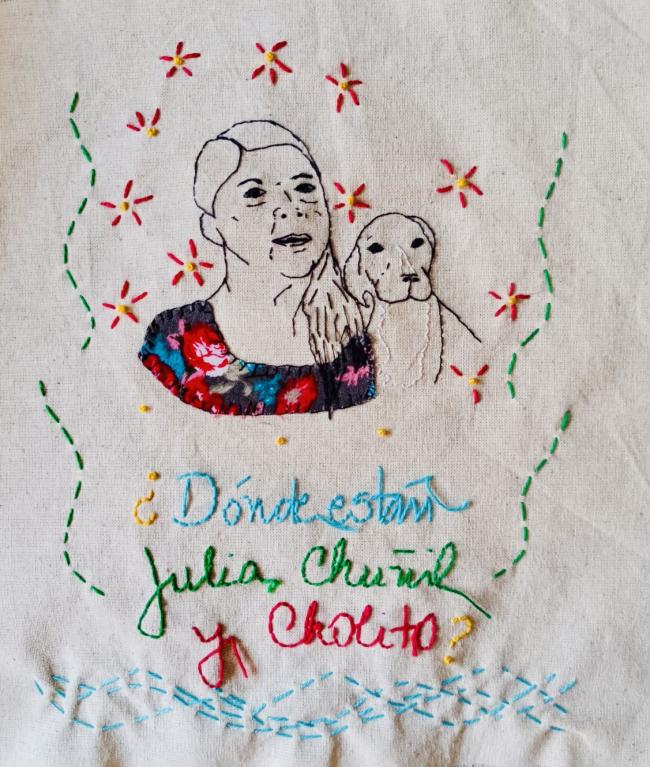 ¿Dónde están
Julia Chuñil
y Cholito?